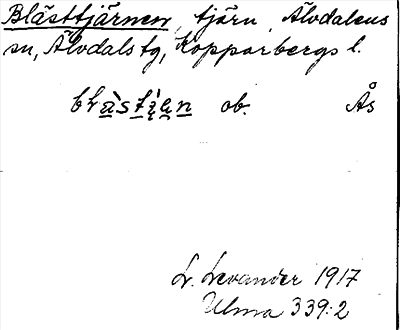 Blästtjärnen, tjärn, Älvdalens
sn, Älvdals tg, Kopparbergs l.
ob. Ås
L. Levander 1917
Ulma 339:2